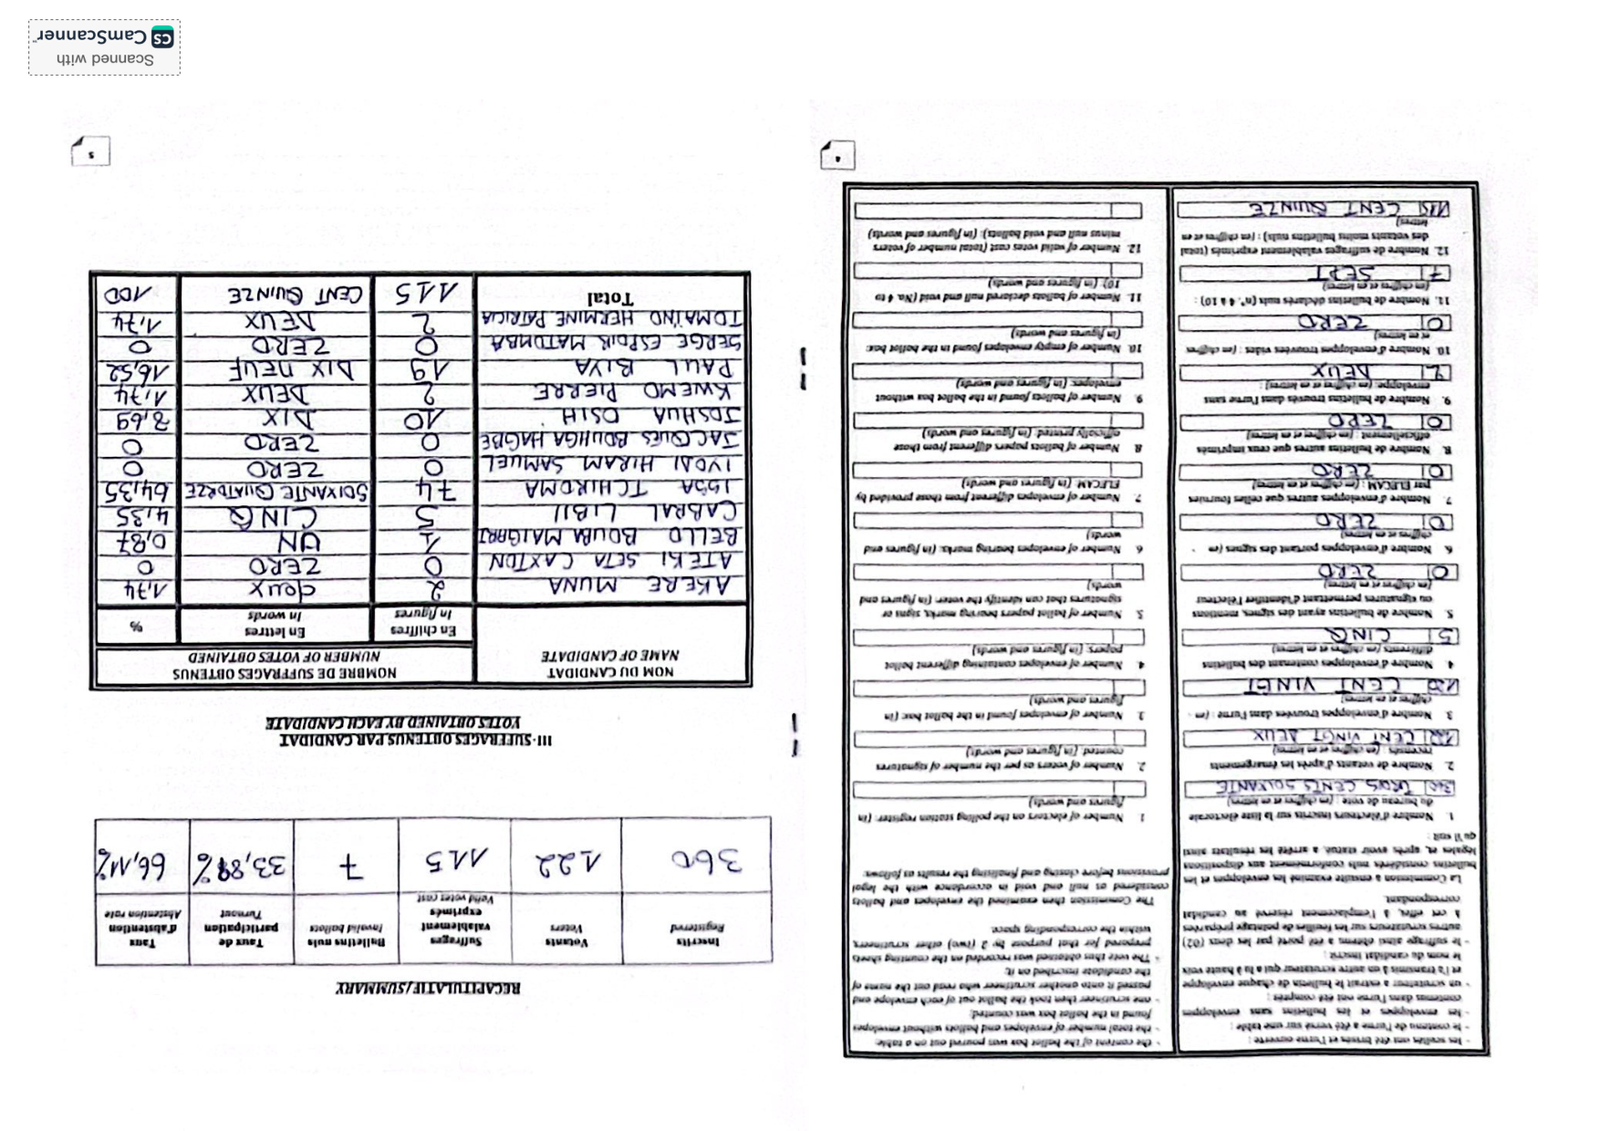 4
- les scellés ont été brisés et l'urne ouverte ;
- le contenu de l'urne a été versé sur une table ;
- les enveloppes et les bulletins sans enveloppes contenus dans l'urne ont été comptés ;
- un scrutateur a extrait le bulletin de chaque enveloppe et l'a transmis à un autre scrutateur qui a lu à haute voix le nom du candidat inscrit ;
- le suffrage ainsi obtenu a été porté par les deux (02) autres scrutateurs sur les feuilles de pointage préparées à cet effet, à l'emplacement réservé au candidat correspondant.
La Commission a ensuite examiné les enveloppes et les bulletins considérés nuls conformément aux dispositions légales et, après avoir statué, a arrêté les résultats ainsi qu'il suit :
1. Nombre d'électeurs inscrits sur la liste électorale du bureau de vote : (en chiffres et en lettres)
360 TROIS CENTS SOIXANTE
2. Nombre de votants d'après les émargements recensés : (en chiffres et en lettres)
122 CENT VINGT DEUX
3 Nombre d'enveloppes trouvées dans l'urne : (en chiffres et en lettres)
120 CENT VINGT
4 Nombre d'enveloppes contenant des bulletins différents (en chiffres et en lettres)
5 CINQ
5. Nombre de bulletins ayant des signes, mentions ou signatures permettant d'identifier l'électeur (en chiffres et en lettres)
0 ZERO
6. Nombre d'enveloppes portant des signes (en chiffres et en lettres)
0 ZERO
7. Nombre d'enveloppes autres que celles fournies par ELECAM : (en chiffres et en lettres)
0 ZERO
8. Nombre de bulletins autres que ceux imprimés officiellement : (en chiffres et en lettres)
0 ZERO
9. Nombre de bulletins trouvés dans l'urne sans enveloppe: (en chiffres et en lettres) :
2 DEUX
10. Nombre d'enveloppes trouvées vides : (en chiffres et en lettres)
0 ZERO
11. Nombre de bulletins déclarés nuls (n°. 4 à 10) : (en chiffres et en lettres)
7 SEPT
12. Nombre de suffrages valablement exprimés (total des votants moins bulletins nuls) : (en chiffres et en lettres)
115 CENT QUINZE
- the content of the ballot box was poured out on a table;
- the total number of envelopes and ballots without envelopes found in the ballot box was counted;
- one scrutineer then took the ballot out of each envelope and passed it onto another scrutineer who read out the name of the candidate inscribed on it;
- The vote thus obtained was recorded on the counting sheets prepared for that purpose by 2 (two) other scrutineers, within the corresponding space.
The Commission then examined the envelopes and ballots considered as null and void in accordance with the legal provisions before closing and finalising the results as follows:
1 Number of electors on the polling station register: (in figures and words)
2. Number of voters as per the number of signatures counted: (in figures and words)
3 Number of envelopes found in the ballot box: (in figures and words)
4. Number of envelopes containing different ballot papers: (in figures and words)
5. Number of ballot papers bearing marks, signs or signatures that can identify the voter: (in figures and words)
6 Number of envelopes bearing marks: (in figures and words)
7. Number of envelopes different from those provided by ELECAM (in figures and words)
8 Number of ballots papers different from those officially printed: (in figures and words)
9. Number of ballots found in the ballot box without envelopes: (in figures and words)
10. Number of empty envelopes found in the ballot box: (in figures and words)
11. Number of ballots declared null and void (No. 4 to 10): (in figures and words)
12. Number of valid votes cast (total number of voters minus null and void ballots): (in figures and words)
5
RECAPITULATIF/SUMMARY
Inscrits Registered | Votants Voters | Suffrages valablement exprimés Valid votes cast | Bulletins nuls Invalid ballots | Taux de participation Turnout | Taux d'abstention Abstention rate
360 | 122 | 115 | 7 | 33,89% | 66,11%
III-SUFFRAGES OBTENUS PAR CANDIDAT
VOTES OBTAINED BY EACH CANDIDATE
NOM DU CANDIDAT NAME OF CANDIDATE | NOMBRE DE SUFFRAGES OBTENUS NUMBER OF VOTES OBTAINED
En chiffres In figures | En lettres In words | %
AKERE MUNA | 2 | deux | 1,74
ATEKI SETA CAXTON | 0 | ZERO | 0
BELLO BOUBA MAIGARI | 1 | UN | 0,87
CABRAL LIBII | 5 | CINQ | 4,35
ISSA TCHIROMA | 74 | SOIXANTE QUATORZE | 64,35
IYODI HIRAM SAMUEL | 0 | ZERO | 0
JACQUES BOUHGA HAGBE | 0 | ZERO | 0
JOSHUA OSIH | 10 | DIX | 8,69
KWEMO PIERRE | 2 | DEUX | 1,74
PAUL BIYA | 19 | DIX NEUF | 16,52
SERGE ESPOIR MATOMBA | 0 | ZERO | 0
TOMAÏNO HERMINE PATRICIA | 2 | DEUX | 1,74
Total | 115 | CENT QUINZE | 100
Scanned with
CS CamScanner